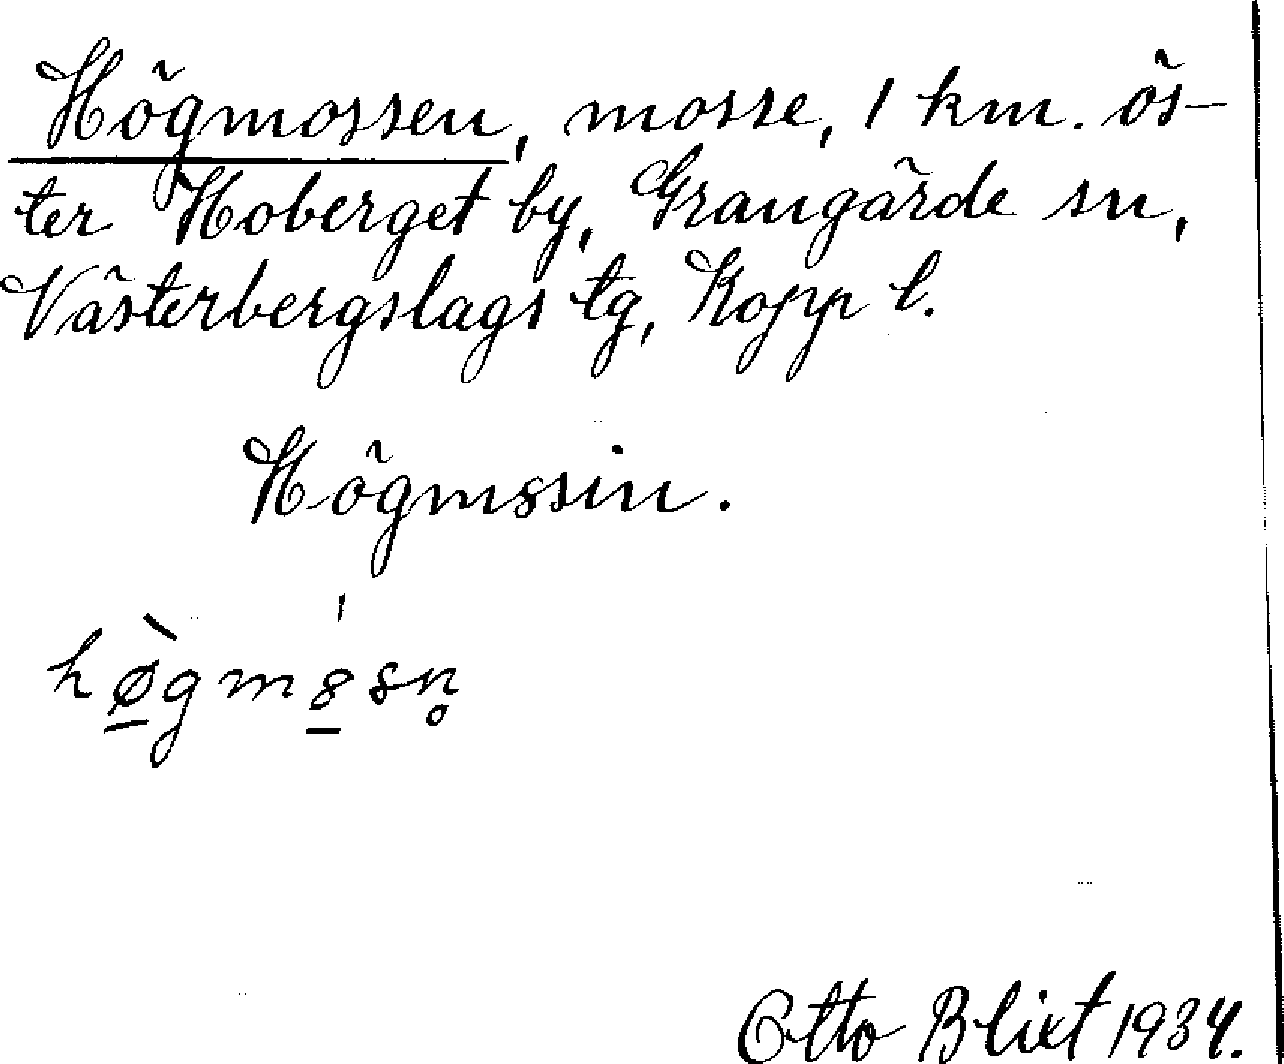 Högmossen, mosse, 1 km. ös-
ter Hoberget by, Grangärde sn,
Västerbergslags tg, Kopp l.
Högm8ssin.
hø̠̀gm8̠́sn̥
Otto Blixt 1934.